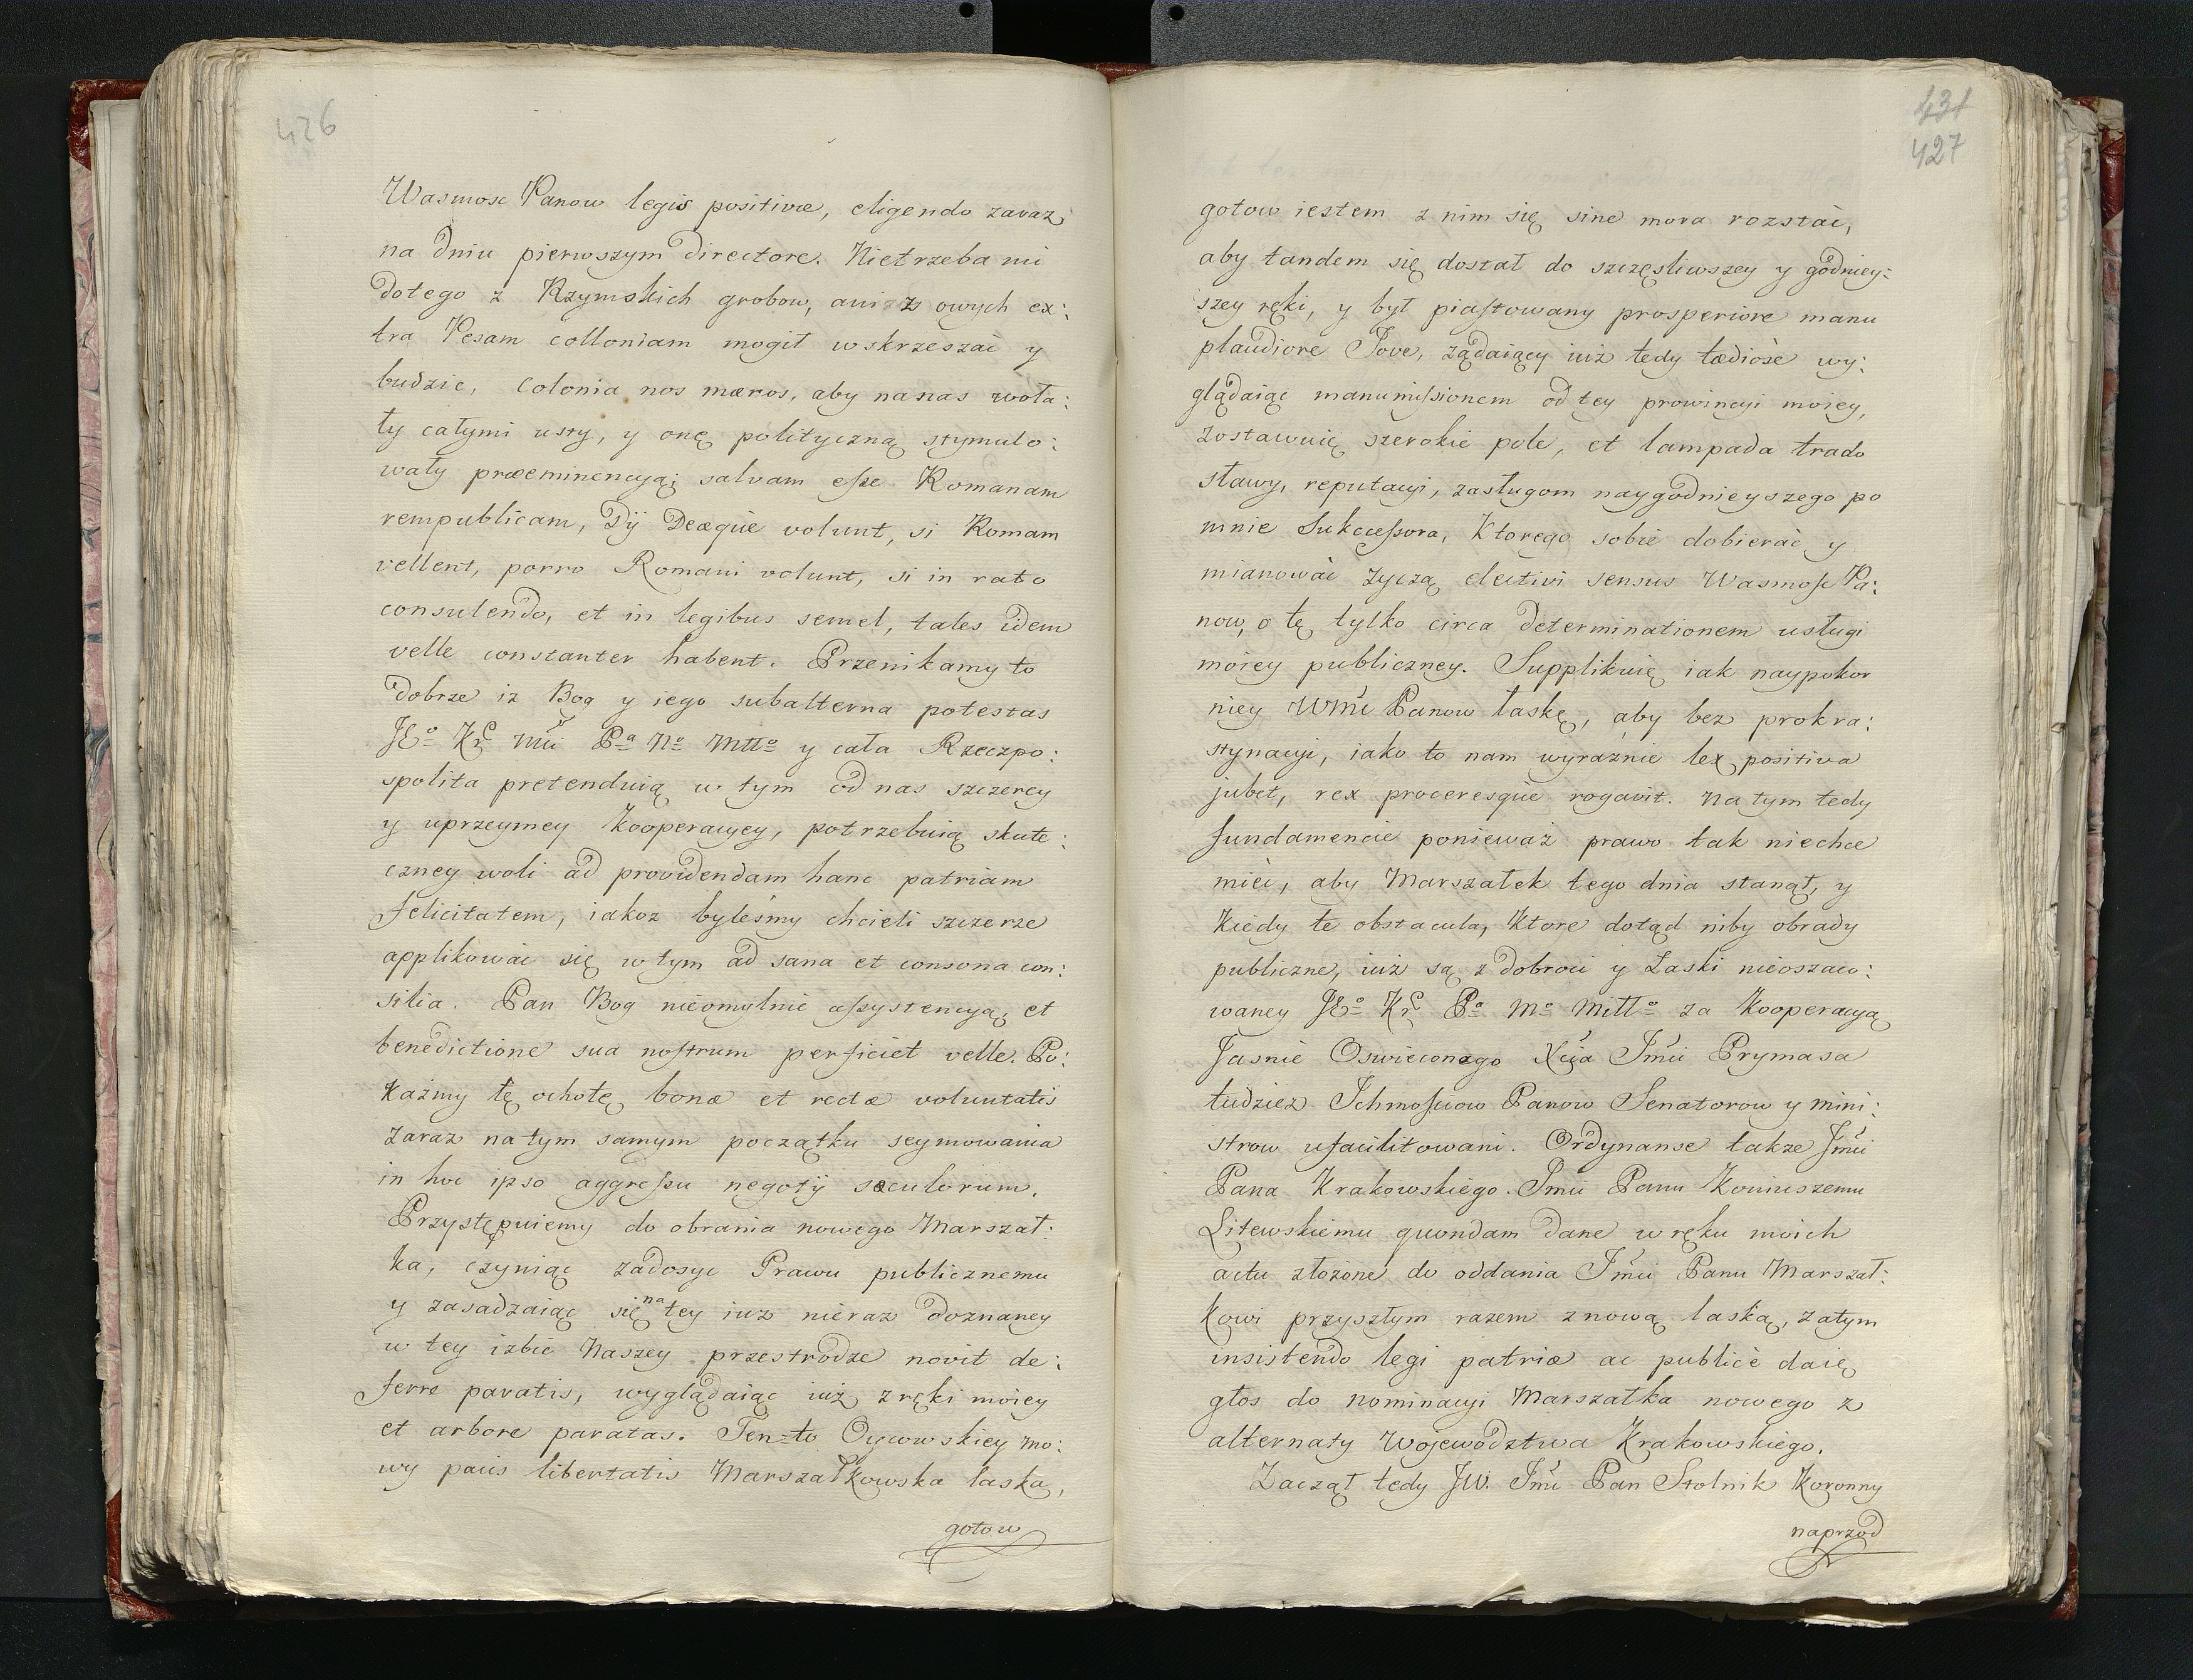 426
Wasmosc Panow legis positivæ, eligendo zaraz
na dniu pierwszym directore. Nietrzeba mi
do tego z Rzymskich grobow, ani z owych ex:
tra Pesam colloniam mogił wskrzeszać y
budzic, Colonia nos mæros, aby na nas woła:
ły całymi usty, y onę polityczną stymulo:
wały præeminencyą; salvam eſse Romanam
rempublicam, Dÿ Deæque volunt, si Romam
vellent, porro Romani volunt, si in rato
consulendo, et in legibus semel, tales idem
velle constanter habent. Przenikamy to
dobrze iz Bog y jego subalterna potestas
JEo Kr Mći Pa No Mttо y cała Rzeczpo:
spolita pretenduią w tym od nas szczerey
y uprzeymey kooperacyey, potrzebuią skute:
czney woli ad providendam hanc patriam
felicitatem, iakoz byleśmy chcieli szczerze
applikować się w tym ad sana et consona con:
silia. Pan Bog nieomylnie aſsystencyą, et
benedictione sua noſtrum perficiet velle. Po:
każmy tę ochotę bonæ et rectæ voluntatis
zaraz na tym samym początku seymowania
in hoc ipso aggreſsu negotÿ sæculorum.
Przystępuiemy do obrania nowego Marszał:
ka, czyniąc zadosyc Prawu publicznemu
y zasadzaiąc się na tey iuz nieraz doznaney
w tey izbie Naszey przestrodze novit de:
ferre paratis, wyglądaiąc iuż z ręki moiey
et arbore paratas. Ten=to Oycowskiey mo:
wy pacis libertatis Marszałkowska laska,
gotow
431
427
gotow iestem z nim się sine mora rozstać,
aby tandem się dostał do szczęsliwszey y godniey:
szey ręki, y był piaſtowany prosperiore manu
plaudiore Jove, żądaiący iuż tedy tædiose wy:
glądaiąc manumiſsionem od tey prowincyi moiey,
zostawuię szerokie pole, et lampada trado
sławy, reputacyi, zasługom naygodnieyszego po
mnie Sukceſsora, ktorego sobie dobierać y
mianować zyczą electivi sensus Wasmoſc Pa:
now, o tę tylko circa determinationem usługi
moiey publiczney. Supplikuię iak naypokor
niey WMć Panow łaskę, aby bez prokra:
stynacyi, iako to nam wyraźnie lex positiva
jubet, rex proceresque rogavit. Na tym tedy
fundamencie ponieważ prawo tak niechce
mieć, aby Marszałek tego dnia stanął, y
kiedy te obstacula, ktore dotąd niby obrady
publiczne, iuż są z dobroci y Łaski nieoszaco:
waney JEo Kr Pa Mo Mitto za kooperacyą
Jasnie Oswieconego Xcia Jmći Prymasa
tudziez Ichmoſciow Panow Senatorow y mini:
strow ufacilitowani. Ordynanse takze Jmći
Pana Krakowskiego. Jmći Panu Koniuszemu
Litewskiemu quondam dane w ręku moich
actu złożone do oddania Jmći Panu Marszał:
kowi przyszłym razem z nową laską, zatym
insistendo legi patriæ ac publicè daię
głos do nominacyi Marszałka nowego z
alternaty Woiewodztwa Krakowskiego.
Zaczął tedy JW. Jmć Pan Stolnik Koronny
naprzod